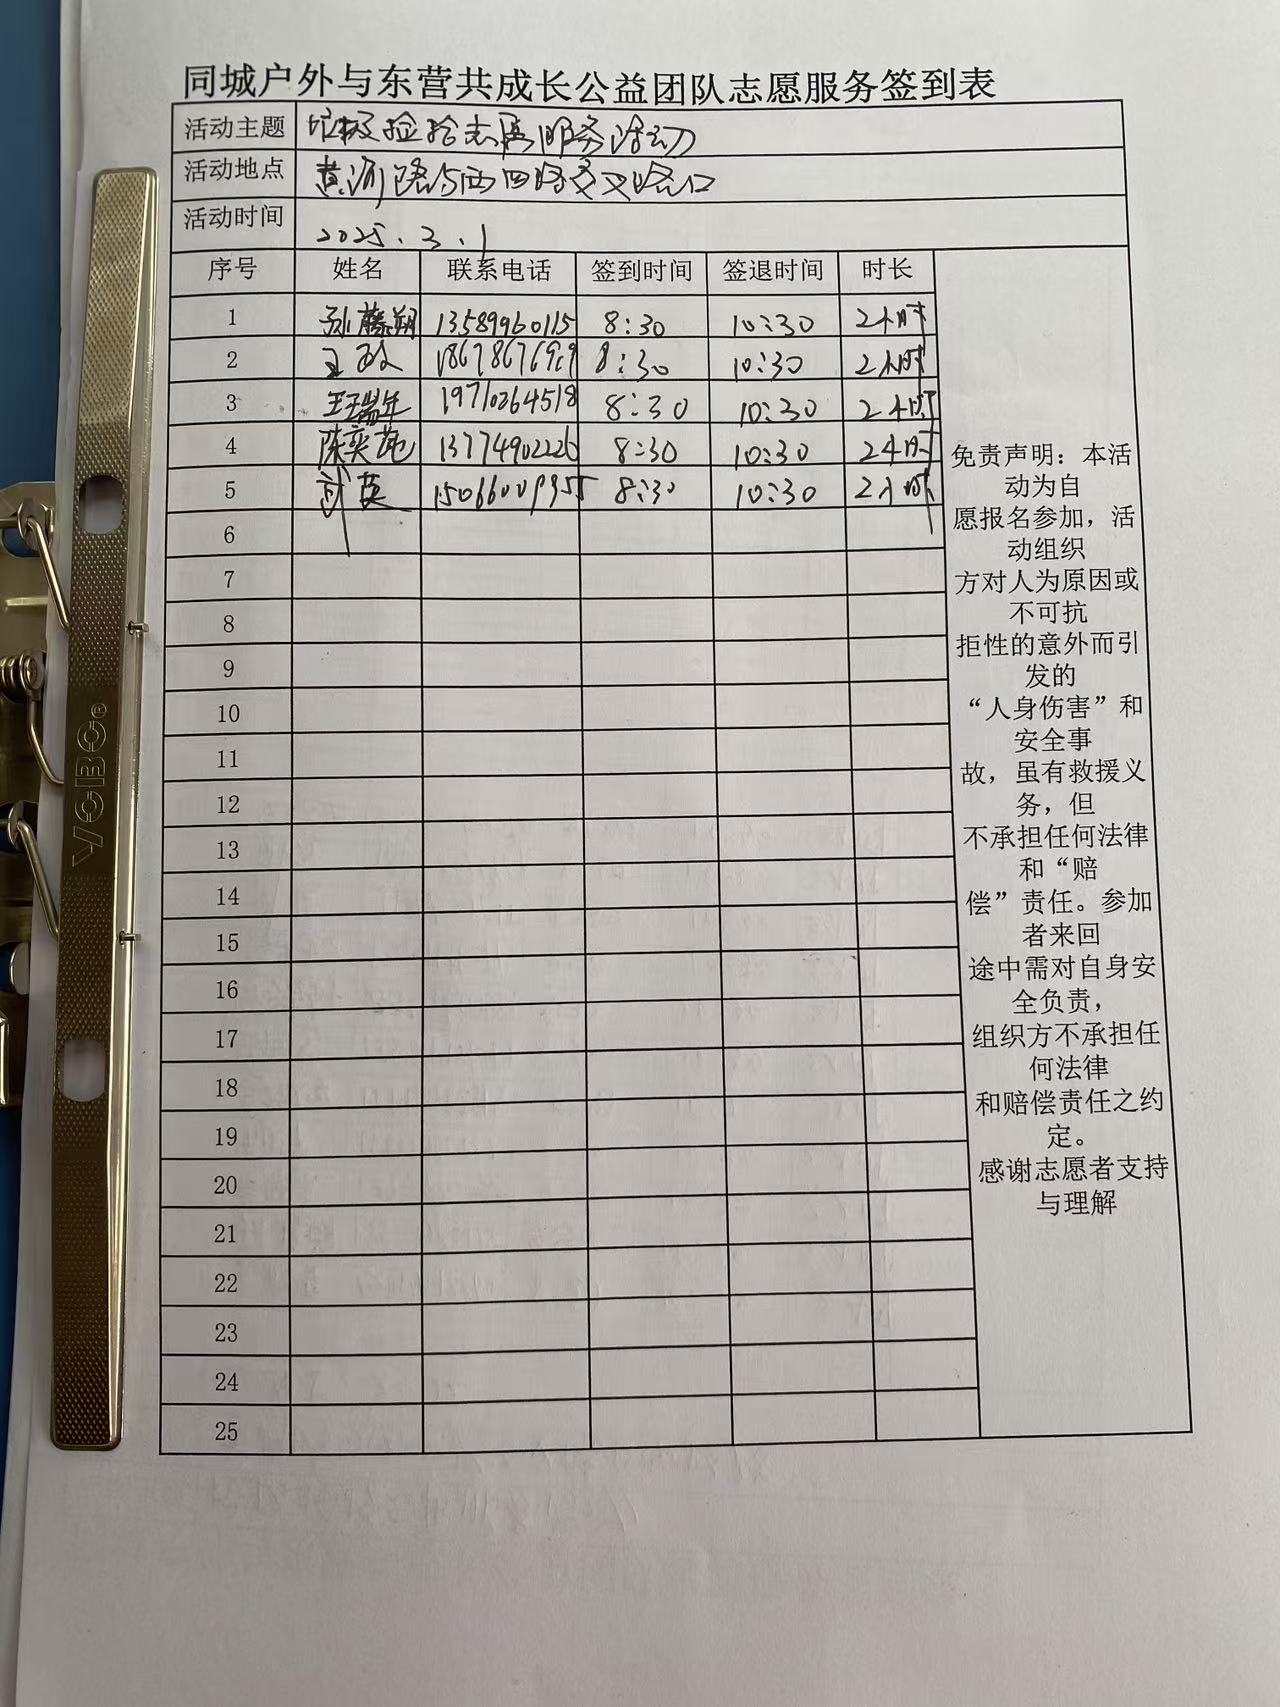 同城户外与东营共成长公益团队志愿服务签到表
活动主题 垃圾捡拾志愿服务活动
活动地点 黄河路与西四路交叉路口
活动时间 2025.3.1
序号 姓名 联系电话 签到时间 签退时间 时长
1 孙藤翔 13589960115 8:30 10:30 2小时
2 王政 8:30 10:30 2小时
3 王瑞年 19710264518 8:30 10:30 2小时
4 陈奕 13774902226 8:30 10:30 2小时
5 武英 15066009955 8:30 10:30 2小时
6
7
8
9
10
11
12
13
14
15
16
17
18
19
20
21
22
23
24
25
免责声明：本活
动为自
愿报名参加，活
动组织
方对人为原因或
不可抗
拒性的意外而引
发的
“人身伤害”和
安全事
故，虽有救援义
务，但
不承担任何法律
和“赔
偿”责任。参加
者来回
途中需对自身安
全负责，
组织方不承担任
何法律
和赔偿责任之约
定。
感谢志愿者支持
与理解
VOBO®